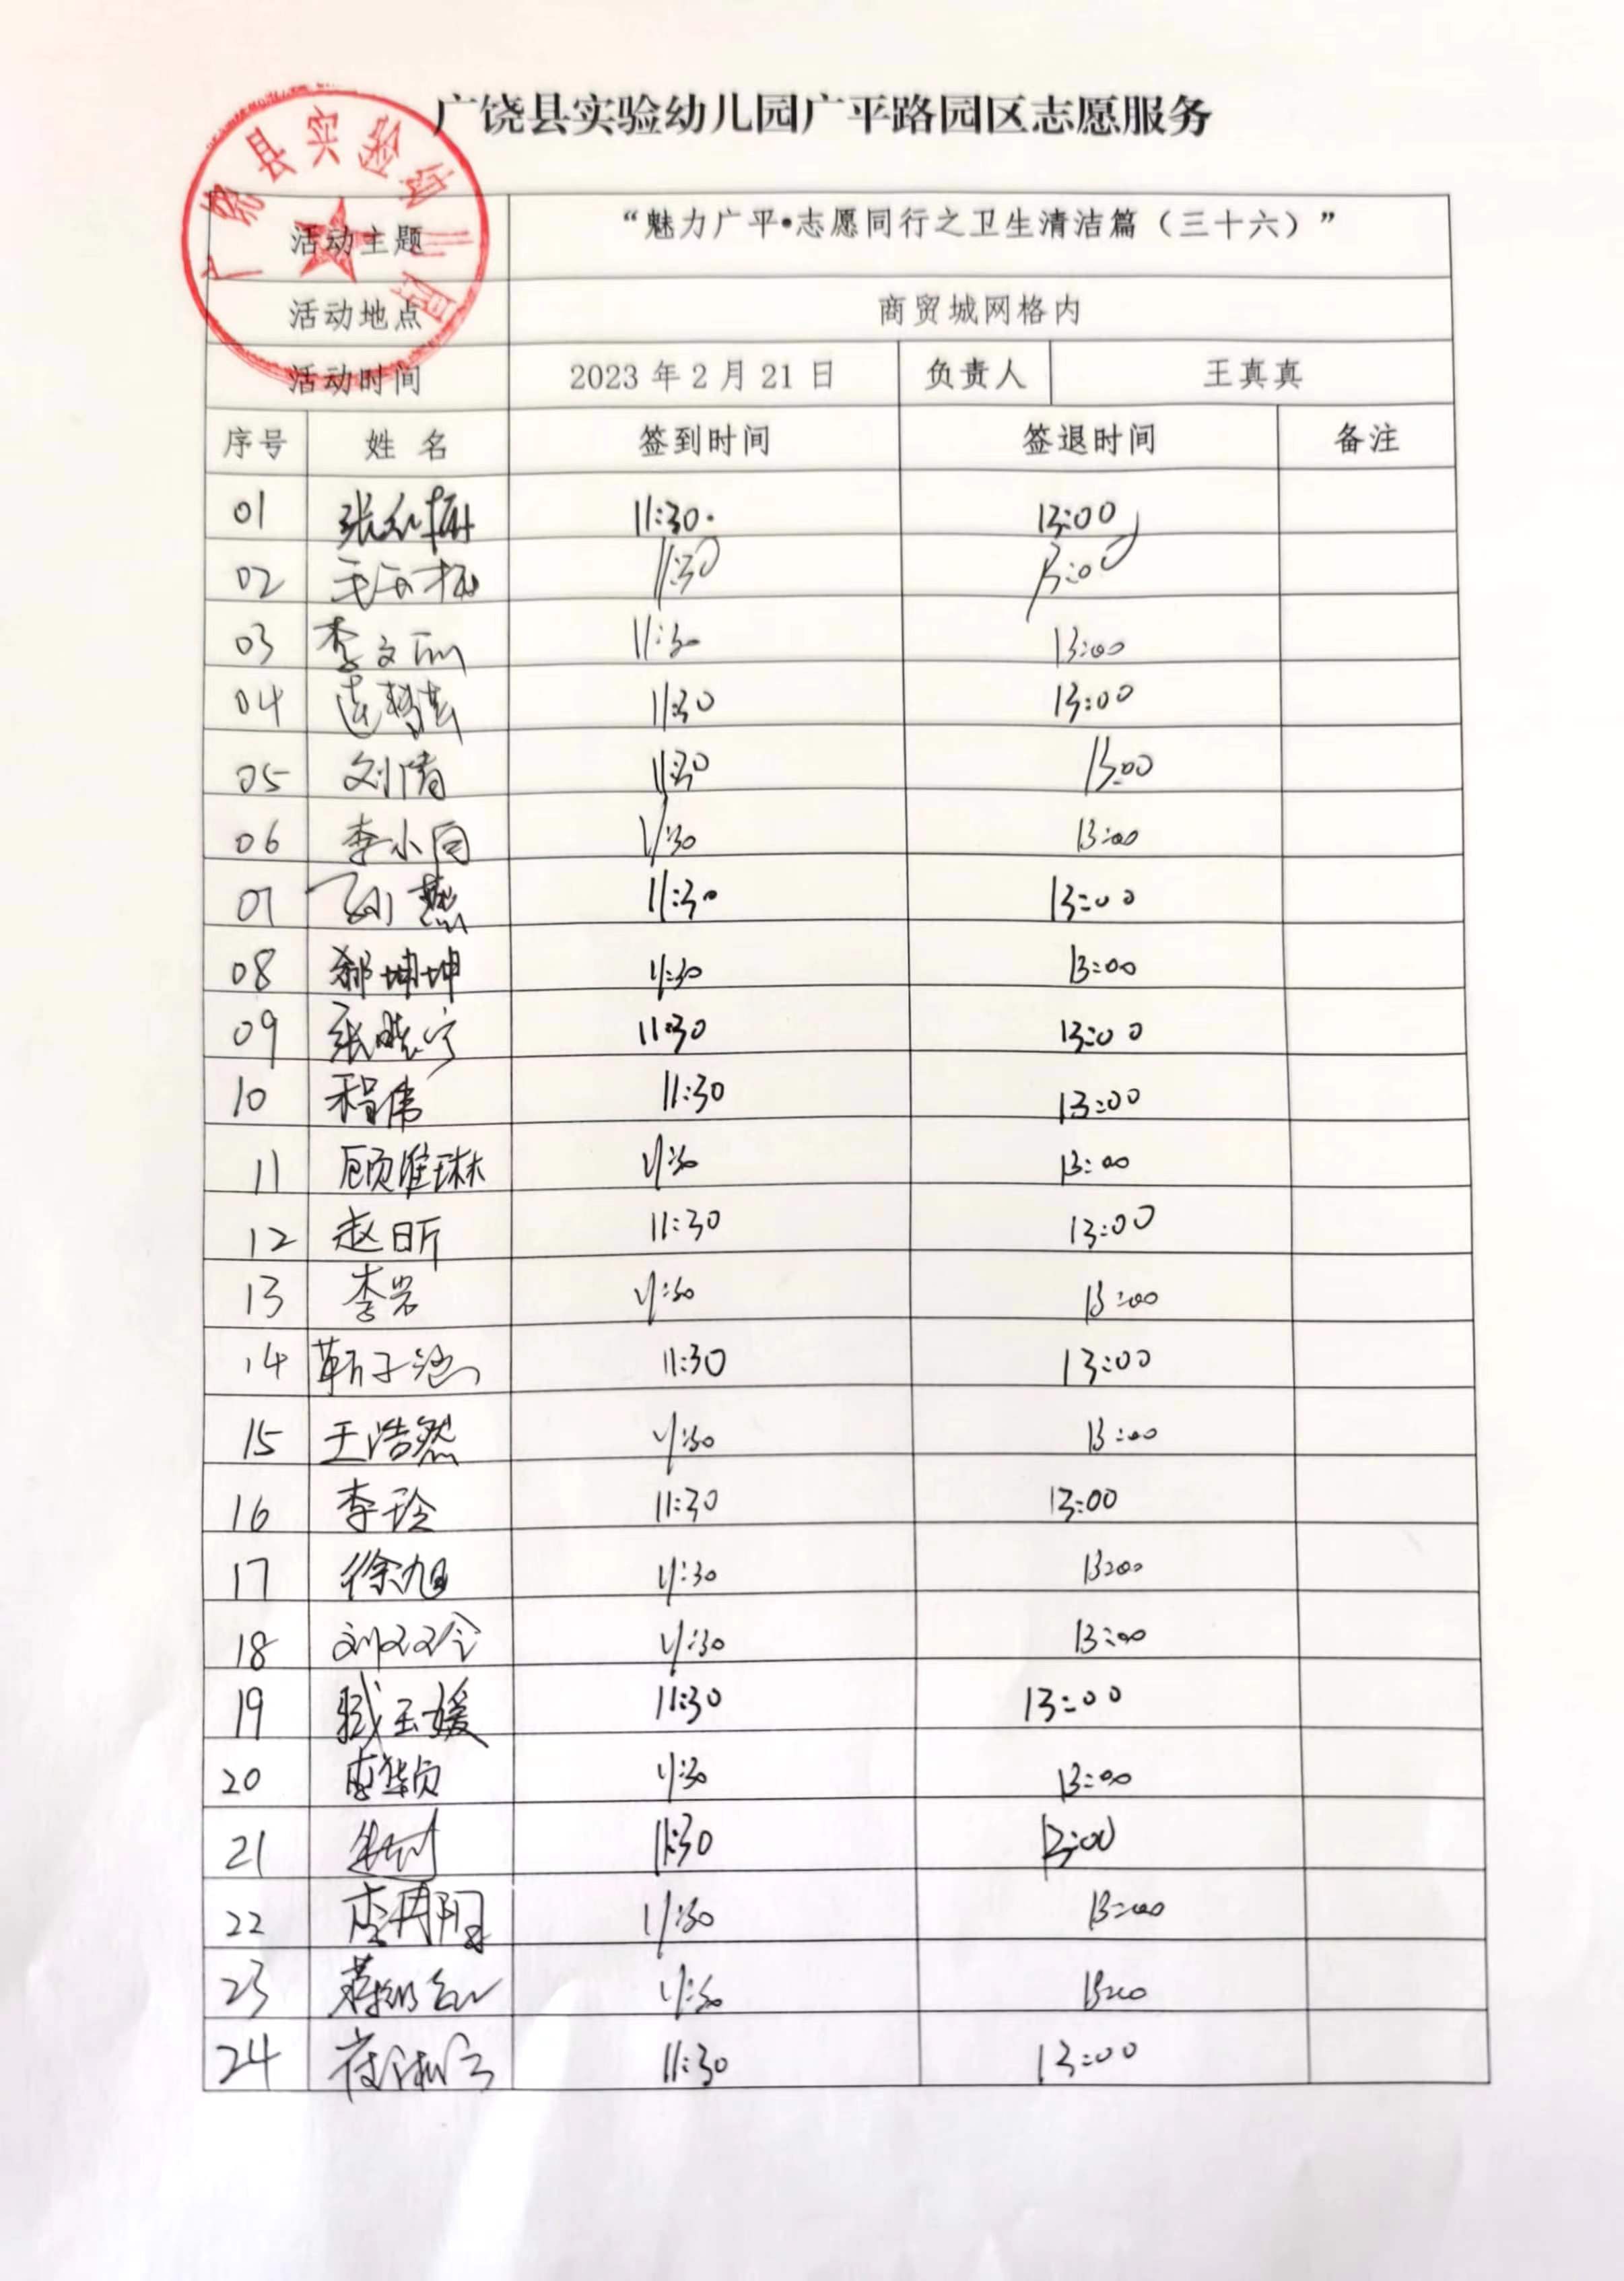 广饶县实验幼儿园广平路园区志愿服务
广饶县实验幼儿园
活动主题 “魅力广平•志愿同行之卫生清洁篇（三十六）”
活动地点 商贸城网格内
活动时间 2023年2月21日 负责人 王真真
序号 姓名 签到时间 签退时间 备注
01 11:30 13:00
02 11:30 13:00
03 李文丽 11:30 13:00
04 11:30 13:00
05 刘倩 11:30 13:00
06 李小同 11:30 13:00
07 孙燕 11:30 13:00
08 郝坤坤 11:30 13:00
09 张晓宁 11:30 13:00
10 程伟 11:30 13:00
11 顾维琳 11:30 13:00
12 赵日昕 11:30 13:00
13 李岩 11:30 13:00
14 靳子涵 11:30 13:00
15 王浩然 11:30 13:00
16 李玲 11:30 13:00
17 徐旭 11:30 13:00
18 刘双双 11:30 13:00
19 臧玉媛 11:30 13:00
20 李华贞 11:30 13:00
21 11:30 13:00
22 李冉阳 11:30 13:00
23 11:30 13:00
24 11:30 13:00